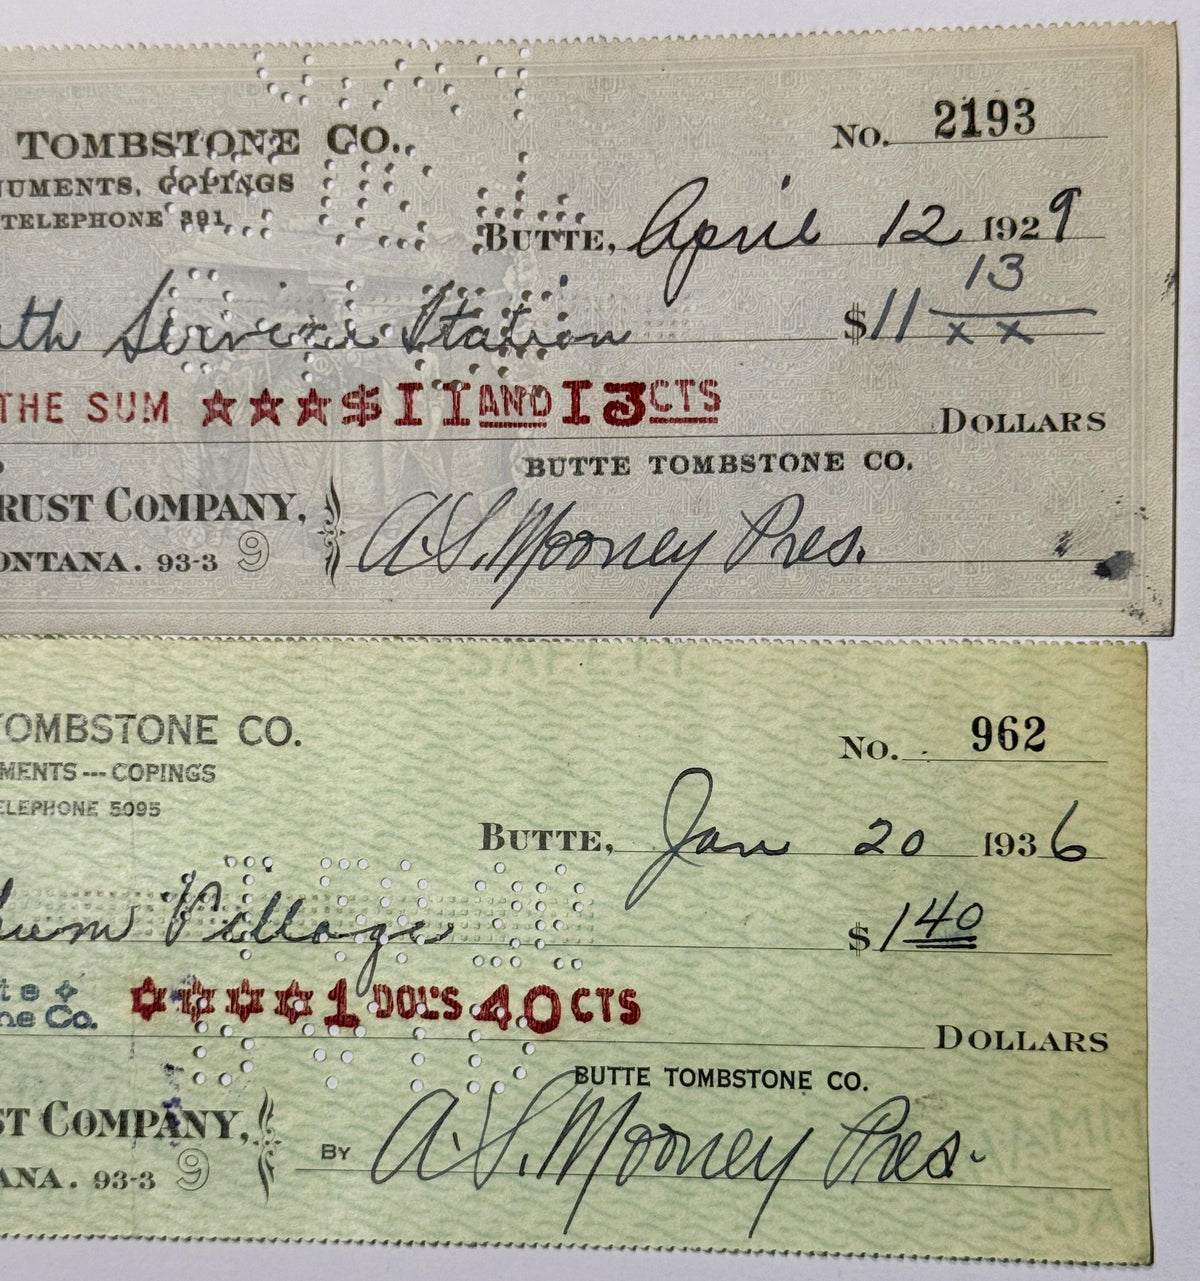 TOMBSTONE CO.
No. 2193
UMENTS, COPINGS
TELEPHONE 391
BUTTE, April 12 1929
Service Station
$11 13/xx
THE SUM ★★★$11 AND 13 CTS
DOLLARS
BUTTE TOMBSTONE CO.
RUST COMPANY,
A S. Mooney Pres.
ONTANA. 93-3 9
SAFETY
TOMBSTONE CO.
No. 962
MENTS --- COPINGS
ELEPHONE 5095
BUTTE, Jan 20 1936
Village
$1 40
1 DOL'S 40 CTS
ne Co.
DOLLARS
BUTTE TOMBSTONE CO.
ST COMPANY,
BY A. S. Mooney Pres.
ANA. 93-3 9
SA